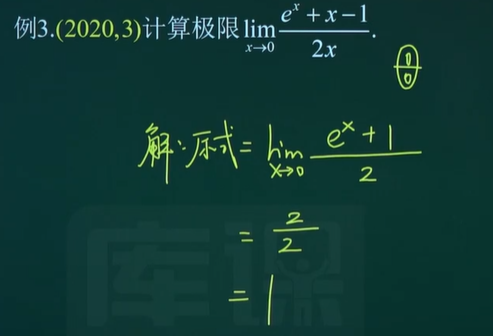 例3.(2020,3)计算极限 lim x→0 (e^x + x − 1)/(2x).
0/0
解:原式 = lim x→0 (e^x + 1)/2
= 2/2
= 1
库课